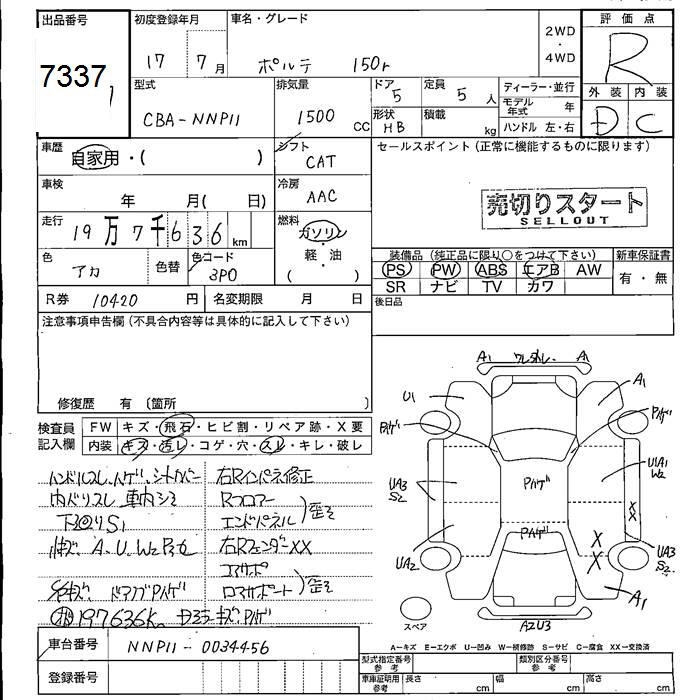 出品番号
7337
初度登録年月
17 7月
車名・グレード
ポルテ 150r
2WD
・
4WD
評価点
R
型式
CBA-NNP11
排気量
1500 CC
ドア
5
形状
HB
定員
5 人
積載
kg
ディーラー・並行
モデル年式 年
ハンドル 左・右
外装 内装
D C
車歴
自家用・( )
シフト
CAT
セールスポイント (正常に機能するものに限ります)
売切りスタート
SELLOUT
車検
年 月( 日)
冷房
AAC
走行
19万7千636 km
燃料
ガソリン
・
軽・油
( )
色
アカ
色替
色コード
3P0
装備品 (純正品に限り○をつけて下さい)
PS PW ABS エアB AW
SR ナビ TV カワ
新車保証書
有・無
後日品
R券 10420 円
名変期限 月 日
注意事項申告欄 (不具合内容等は具体的に記入して下さい)
修復歴 有 〔箇所 〕
検査員記入欄
FW キズ・飛石・ヒビ割・リペア跡・X要
内装 キズ・汚レ・コゲ・穴・スレ・キレ・破レ
ハンドルスレ、ハゲ、シートカバー
内ドリスレ 車内シミ
下回りS1
A.U.W2
197636K
右Rインパネ修正
Rフロアー
エンドパネル)歪ミ
右Rフェンダー XX
コアサポ
ロアサポート)歪ミ
車台番号
NNP11-0034456
登録番号
A1 ワレ、外レ A1
U1
A1
Pハゲ
Pハゲ
Pハゲ
UA3
S2
UA1
W2
X
X
X
X
Pハゲ
UA2
UA3
S2
A1
スペア
A2U3
A-キズ E-エクボ U-凹み W-補修跡 S-サビ C-腐食 XX-交換済
型式指定番号
参考
類別区分番号
参考
車庫証明用
参考
長さ cm
幅 cm
高さ cm